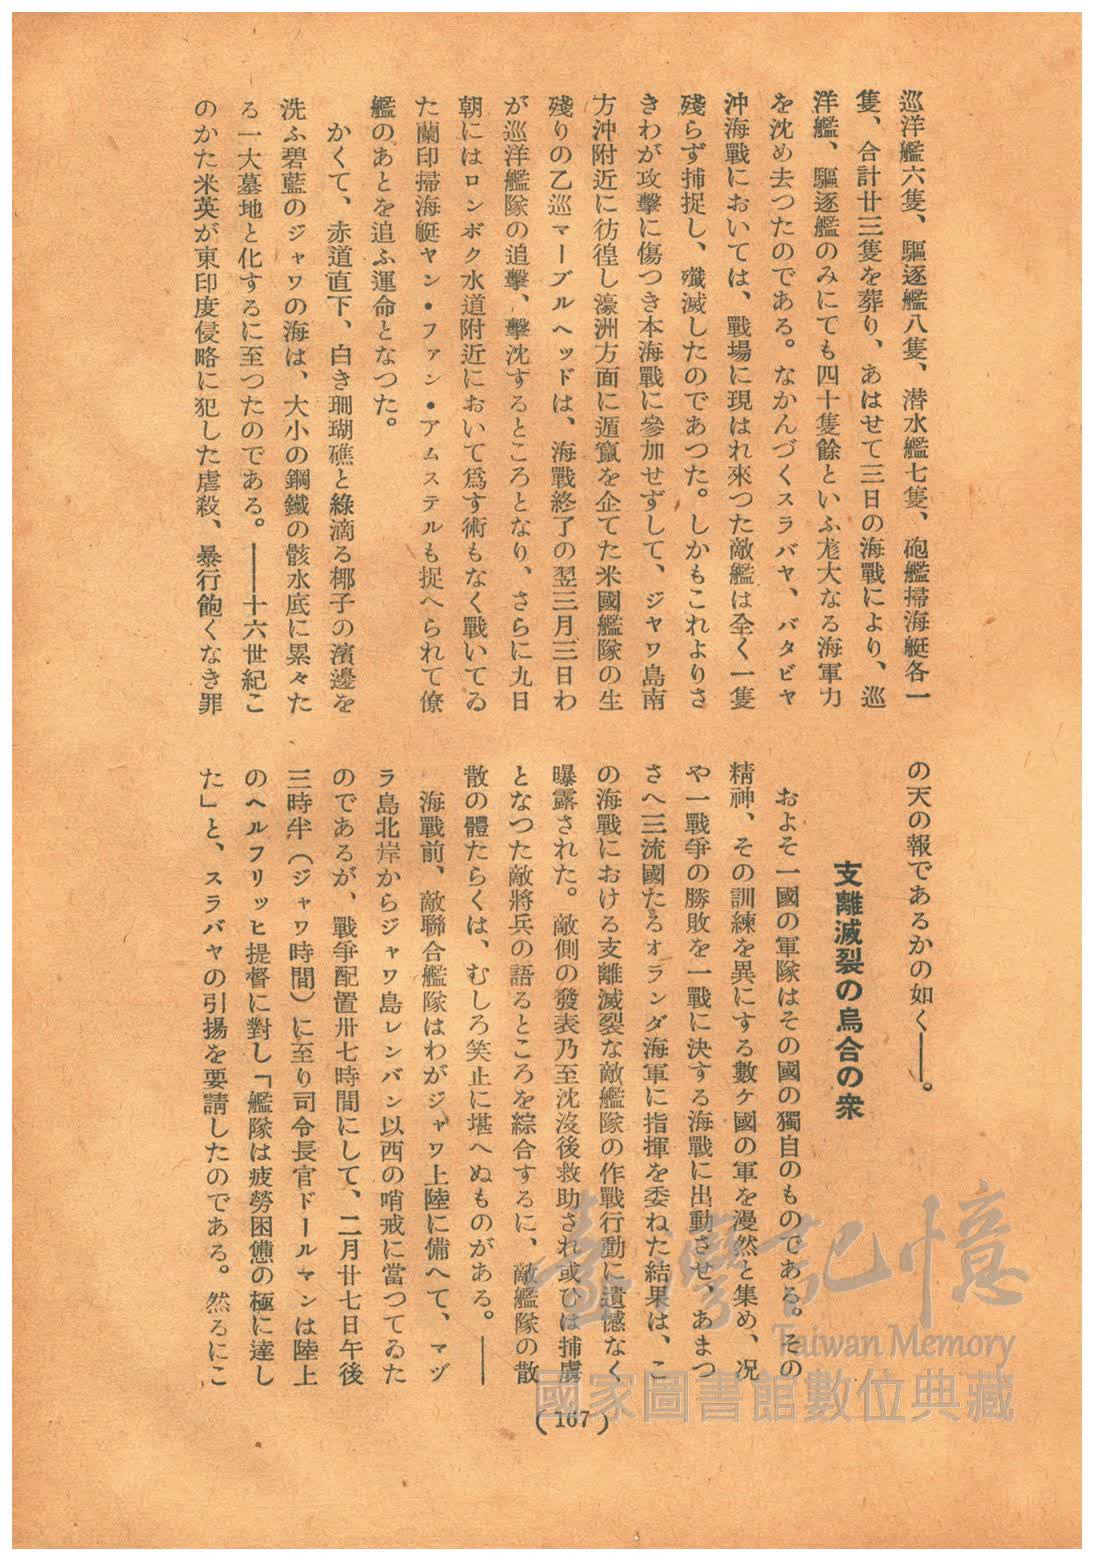 巡洋艦六隻、驅逐艦八隻、潜水艦七隻、砲艦掃海艇各一
隻、合計廿三隻を葬り、あはせて三日の海戰により、巡
洋艦、驅逐艦のみにても四十隻餘といふ尨大なる海軍力
を沈め去つたのである。なかんづくスラバヤ、バタビヤ
沖海戰においては、戰場に現はれ來つた敵艦は全く一隻
殘らず捕捉し、殲滅したのであつた。しかもこれよりさ
きわが攻擊に傷つき本海戰に參加せずして、ジャワ島南
方沖附近に彷徨し濠洲方面に遁竄を企てた米國艦隊の生
殘りの乙巡マーブルヘッドは、海戰終了の翌三月三日わ
が巡洋艦隊の追擊、擊沈するところとなり、さらに九日
朝にはロンボク水道附近において爲す術もなく戰いてゐ
た蘭印掃海艇ヤン・ファン・アムステルも捉へられて僚
艦のあとを追ふ運命となつた。
かくて、赤道直下、白き珊瑚礁と綠滴る椰子の濱邊を
洗ふ碧藍のジャワの海は、大小の鋼鐵の骸水底に累々た
る一大墓地と化するに至つたのである。――十六世紀こ
のかた米英が東印度侵略に犯した虐殺、暴行飽くなき罪
の天の報であるかの如く――。
支離滅裂の烏合の衆
およそ一國の軍隊はその國の獨自のものである。その
精神、その訓練を異にする數ヶ國の軍を漫然と集め、況
や一戰爭の勝敗を一戰に決する海戰に出動させ、あまつ
さへ三流國たるオランダ海軍に指揮を委ねた結果は、こ
の海戰における支離滅裂な敵艦隊の作戰行動に遺憾なく
曝露された。敵側の發表乃至沈沒後救助され或ひは捕虜
となつた敵將兵の語るところを綜合するに、敵艦隊の散
散の體たらくは、むしろ笑止に堪へぬものがある。――
海戰前、敵聯合艦隊はわがジャワ上陸に備へて、マヅ
ラ島北岸からジャワ島レンバン以西の哨戒に當つてゐた
のであるが、戰爭配置卅七時間にして、二月廿七日午後
三時半（ジャワ時間）に至り司令長官ドールマンは陸上
のヘルフリッヒ提督に對し「艦隊は疲勞困憊の極に達し
た」と、スラバヤの引揚を要請したのである。然るにこ
(167)
臺灣記憶
Taiwan Memory
國家圖書館數位典藏